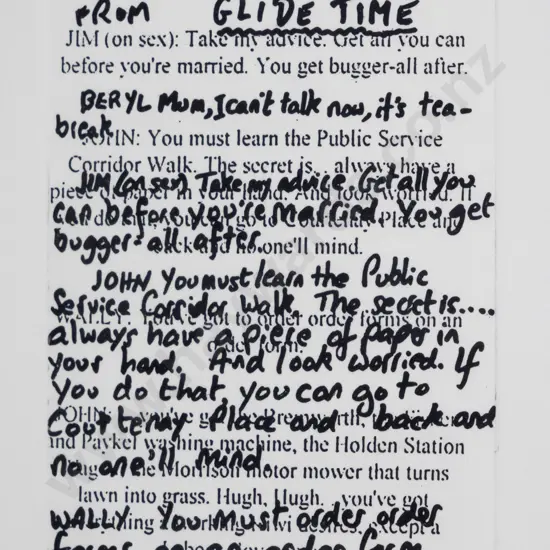 FROM GLIDE TIME
JIM (on sex): Take my advice. Get all you can
before you're married. You get bugger-all after.
BERYL Mum, I can't talk now, it's tea-
break
JOHN: You must learn the Public Service
Corridor Walk. The secret is... always have a
piece of paper in your hand. And look worried. If
JIM (on sex) Take my advice Get all you
can before you're married. You get
bugger-all after.
back and no one'll mind.
JOHN You must learn the Public
Service Corridor Walk The secret is....
WALLY: You've got to order order forms on an
order form.
always have a piece of paper in
your hand. And look worried. If
you do that, you can go to
Courtenay Place and back and
JOHN: you've got
and Paykel washing machine, the Holden Station
no one'll mind.
Morrison motor mower that turns
lawn into grass. Hugh, Hugh. you've got
WALLY You must order order
forms on an order form